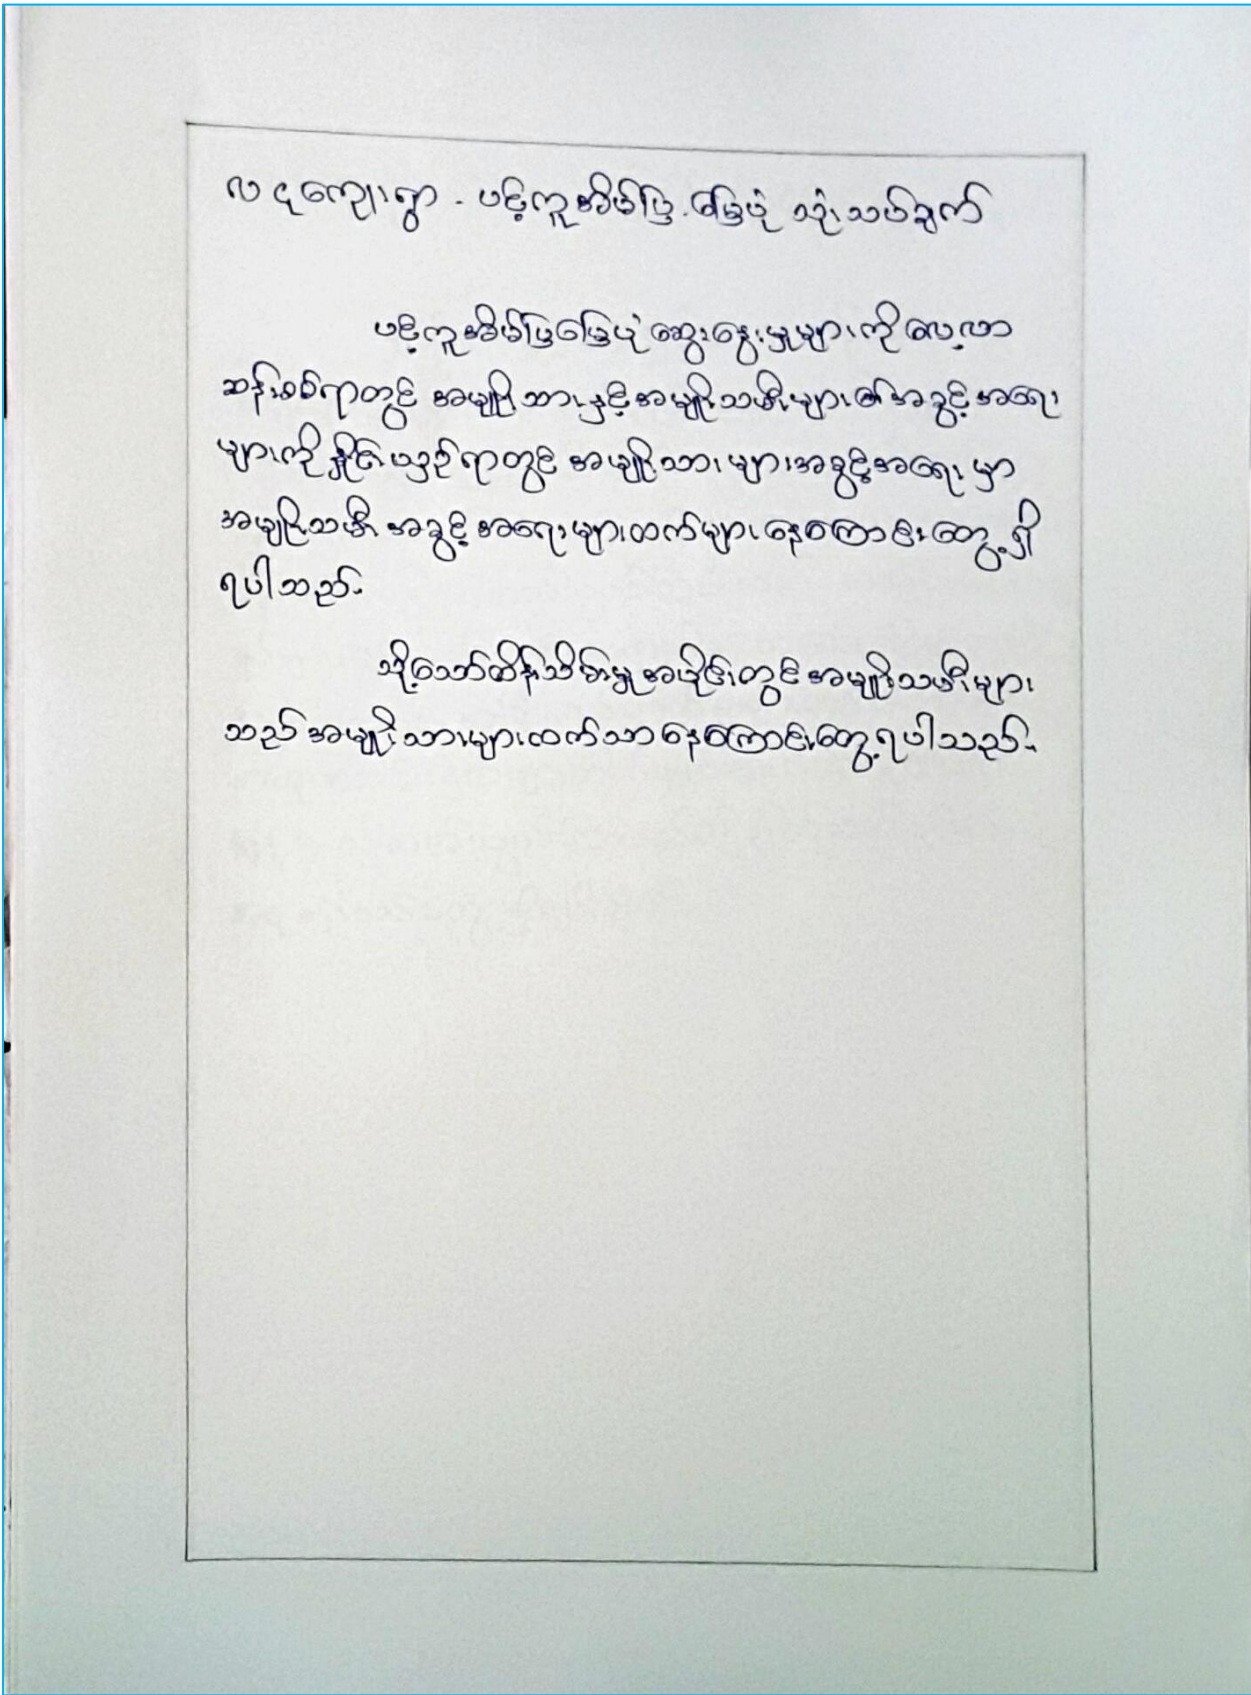 လ ၎ကျေးရွာ - ပင့်ကူအိမ်ပြ မြေပုံ သုံးသပ်ချက်
ပင့်ကူအိမ်ပြမြေပုံ ဆွေးနွေးမှုများကို လေ့လာ
ဆန်းစစ်ရာတွင် အမျိုးသားနှင့် အမျိုးသမီးများ၏ အခွင့်အရေး
များကို နှိုင်းယှဉ်ရာတွင် အမျိုးသားများအခွင့်အရေးမှာ
အမျိုးသမီး အခွင့်အရေးများထက်များနေကြောင်းတွေ့ရှိ
ရပါသည်။
သို့သော်ထိန်းသိမ်းမှုအပိုင်းတွင် အမျိုးသမီးများ
သည် အမျိုးသားများထက်သာနေကြောင်းတွေ့ရပါသည်။